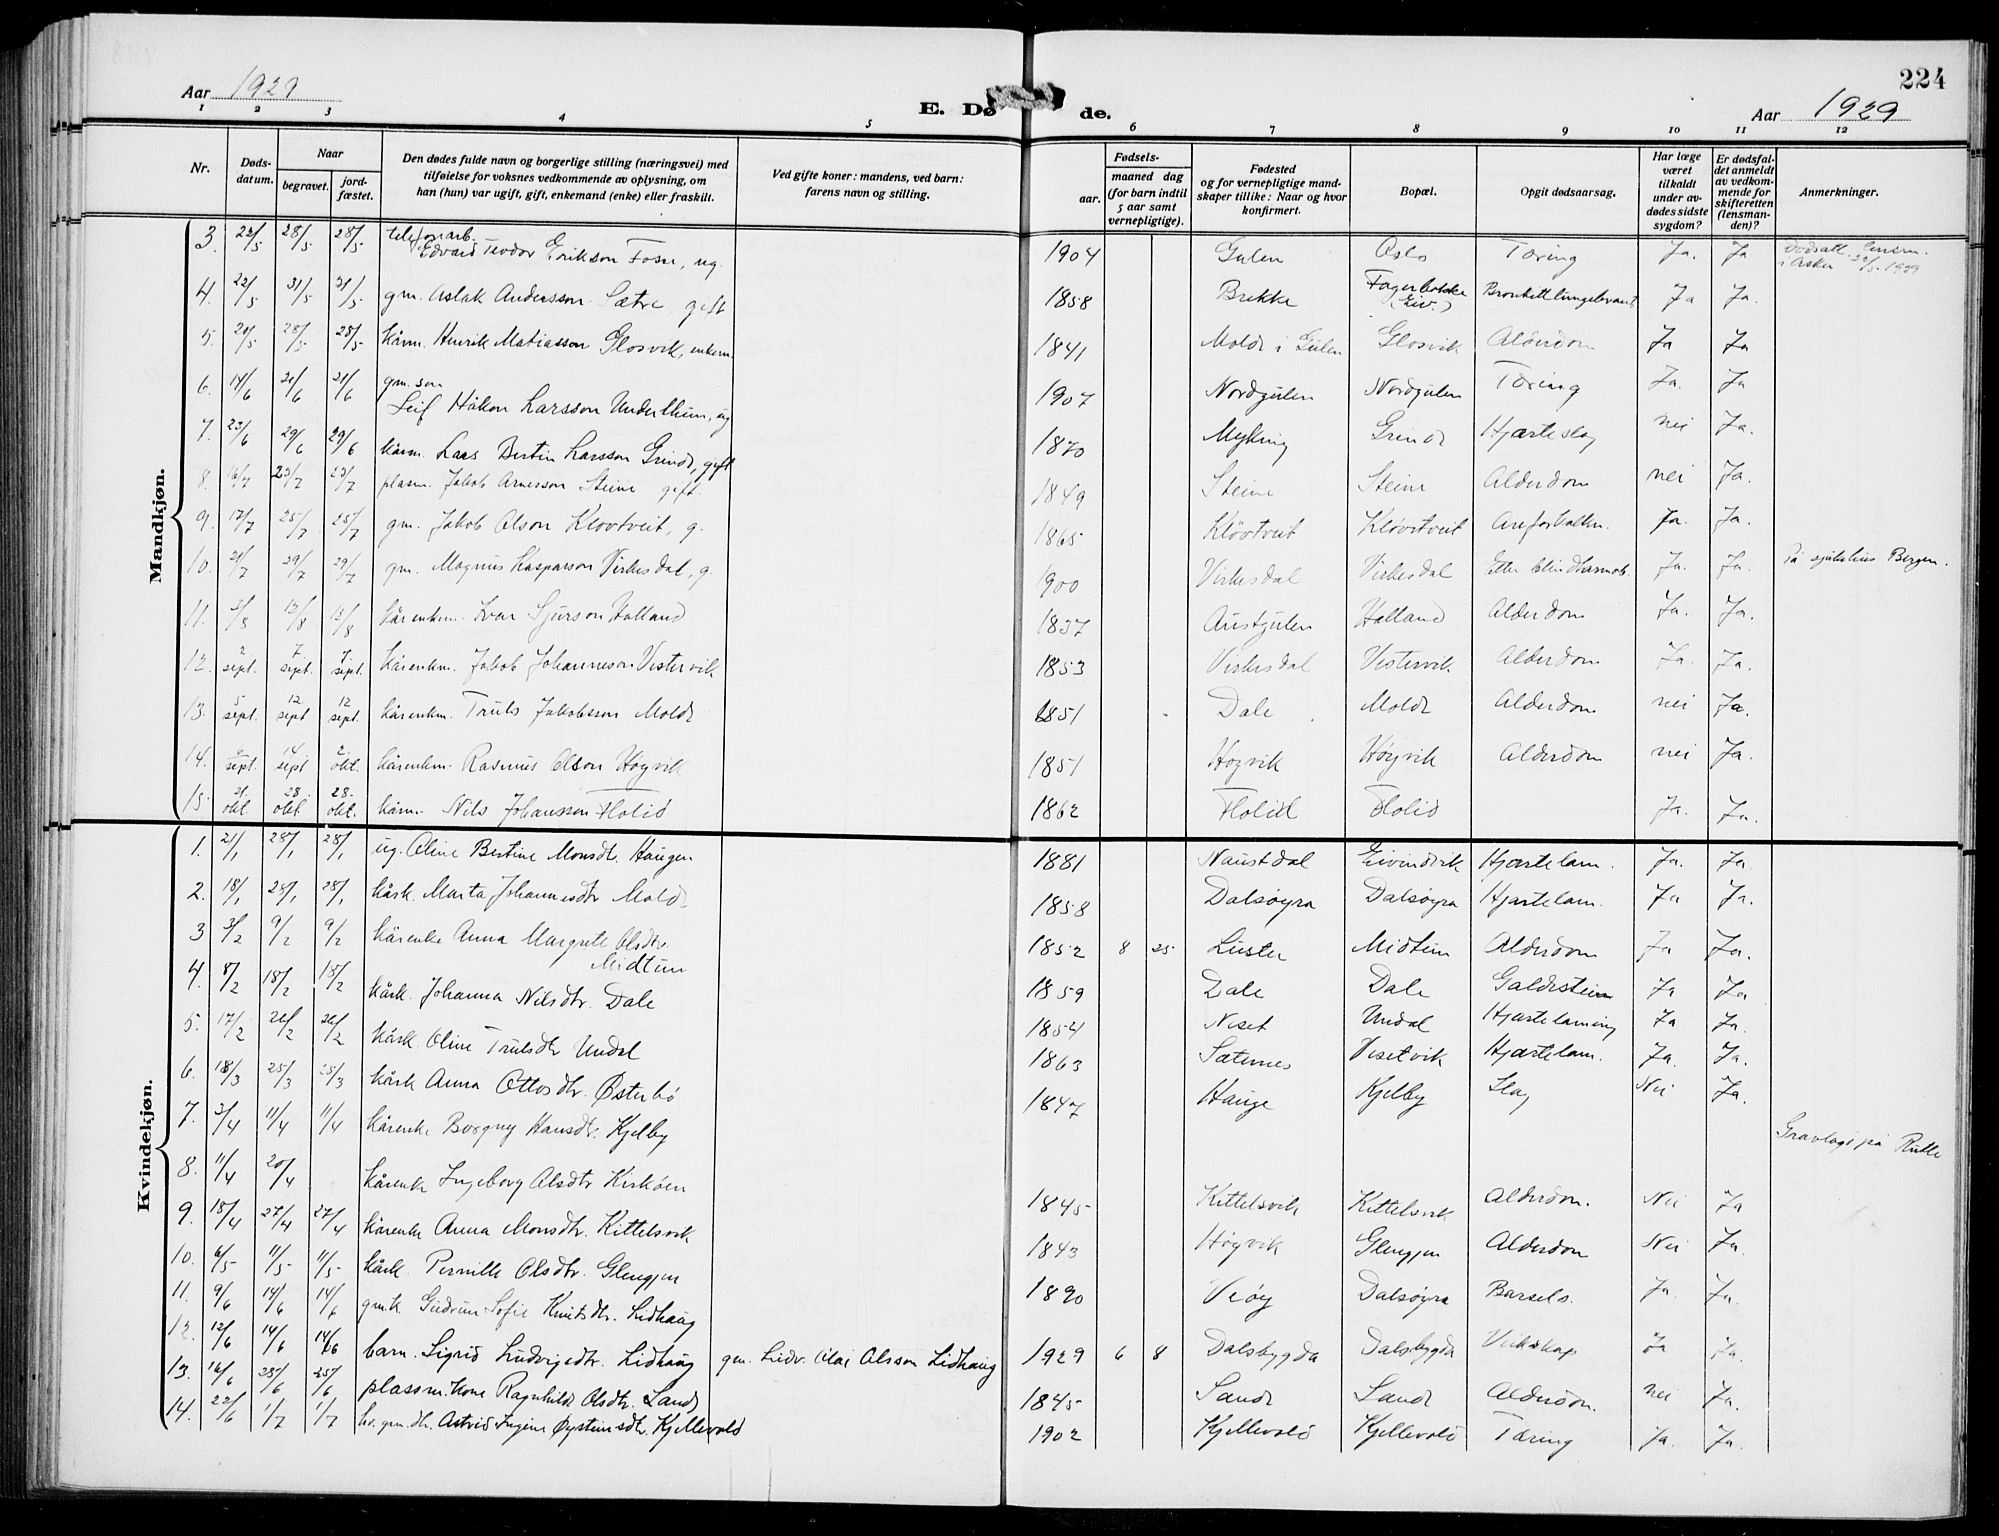 224
Aar 1929
E. Døde.
Aar 1929
1 2 3 4 5 6 7 8 9 10 11 12
Nr.
Døds-
datum.
Naar
begravet.
jord-
fæstet.
Den dødes fulde navn og borgerlige stilling (næringsvei) med
tilføielse for voksnes vedkommende av oplysning, om
han (hun) var ugift, gift, enkemand (enke) eller fraskilt.
Ved gifte koner: mandens, ved barn:
farens navn og stilling.
Fødsels-
aar.
maaned dag
(for barn indtil
5 aar samt
vernepligtige).
Fødested
og for vernepligtige mand-
skaper tillike: Naar og hvor
konfirmert.
Bopæl.
Opgit dødsaarsag.
Har læge
været
tilkaldt
under av-
dødes sidste
sygdom?
Er dødsfal-
det anmeldt
av vedkom-
mende for
skifteretten
(lensman-
den)?
Anmerkninger.
Mandkjøn.
3. 22/5 28/5 28/5 telefonarb. Edvard Teodor Erikson Fosse, ug. 1904 Gulen Oslo Tæring Ja. Ja i Asker 1929
4. 22/5 31/5 31/5 gm. Aslak Andersson Sætre gift 1858 Brekke (Eiv.) Ja Ja.
5. 20/5 28/5 28/5 kårm. Henrik Matiasson Glosvik, enkem. 1841 Molde i Gulen Glosvik Alderdom Ja Ja
6. 14/6 21/6 21/6 gm. son Leif Håkon Larsson Underthun, ug 1907 Nordgulen Nordgulen Tæring Ja. Ja
7. 23/6 29/6 29/6 kårm. Lars Bertin Larsson Grinde, gift 1870 Myking Grinde Hjarteslag nei Ja.
8. 16/7 23/7 23/7 plasm. Jakob Arnesson Steine gift. 1849 Steine Steine Alderdom nei Ja.
9. 17/7 25/7 25/7 gm. Jakob Olson Kløvtveit, g. 1865 Kløvtveit Kløvtveit Areforkalkn. Ja. Ja.
10. 21/7 29/7 29/7 gm. Magnus Kasparson Virkesdal, g. 1900 Virkesdal Virkesdal Etter blindtarmob. Ja. Ja. På sjukehus Bergen.
11. 3/8 13/8 13/8 kårenkm. Ivar Sjurson Halland 1837 Austgulen Halland Alderdom Ja. Ja.
12. 2 sept. 7 sept. 7 sept. kårenkm. Jakob Johanneson Vestervik 1853 Virkesdal Vestervik Alderdom Ja. Ja.
13. 5 sept. 12 sept 12 sept. kårenkm. Truls Jakobsson Molde 1851 Dale Molde Alderdom nei Ja.
14. 6 sept. 14 sept 2 okt. kårenkm. Rasmus Olson Høgvik 1851 Høgvik Høgvik Alderdom nei Ja.
15. 21. okt. 28. okt. 28. okt. kårm. Nils Johansson Flolid 1862 Flolid Flolid Ja. Ja.
Kvindekjøn.
1. 21/1 28/1 28/1 ug. Oline Bertine Monsdtr. Haugen 1881 Naustdal Eivindvik Hjartelam. Ja. Ja
2. 18/1 28/1 28/1 kårk. Marta Johannesdtr Molde 1858 Dalsøyra Dalsøyra Hjartelam. Ja Ja.
3 3/2 9/2 9/2 kårenke Anna Margrete Olsdtr. Midtun 1852 8 25 Luster Midtun Alderdom Ja Ja.
4. 8/2 18/2 18/2 kårk. Johanna Nilsdtr. Dale 1859 Dale Dale Galdestein Ja Ja
5. 17/2 26/2 26/2 kårk. Oline Trulsdtr Undal 1854 Neset Undal Hjartelaming Ja Ja.
6. 18/3 25/3 25/3 kårk Anna Ottosdtr. Østerbø 1863 Sæternes Hjartelam. Ja. Ja.
7. 3/4 11/4 11/4 kårenke Borgny Hansdtr. Kjelby 1847 Hauge Kjelby Slag Nei Ja.
8. 11/4 20/4 kårenke Ingeborg Olsdtr Kirkøen Gravlagt på Rutle
9. 18/4 27/4 27/4 kårenke Anna Monsdtr. Kittelsvik 1845 Kittelsvik Kittelsvik Alderdom. Nei Ja
10. 6/5 11/5 11/5 kårk. Pernille Olsdtr. Glengjen 1843 Høgvik Glengjen Alderdom Nei Ja.
11. 9/6 14/6 14/6 gm.k. Gudrun Sofie Knutsdtr. Lidhaug 1890 Dalsøyra Barsels. Ja. Ja.
12. 12/6 14/6 14/6 barn. Sigrid Ludvigsdtr. Lidhaug gm. Ludv. Olai Olsson Lidhaug 1929 6 8 Dalsbygda Dalsbygda Ja Ja.
13. 16/6 25/6 25/6 plassm. kone Ragnhilde Olsdtr. Sande 1845 Sande Sande Alderdom. nei Ja.
14. 22/6 1/7 1/7 hv. gm. dtr. Astrid Ingine Øysteinsdtr. Kjellevold 1902 Kjellevold Kjellevold Tæring Ja. Ja.